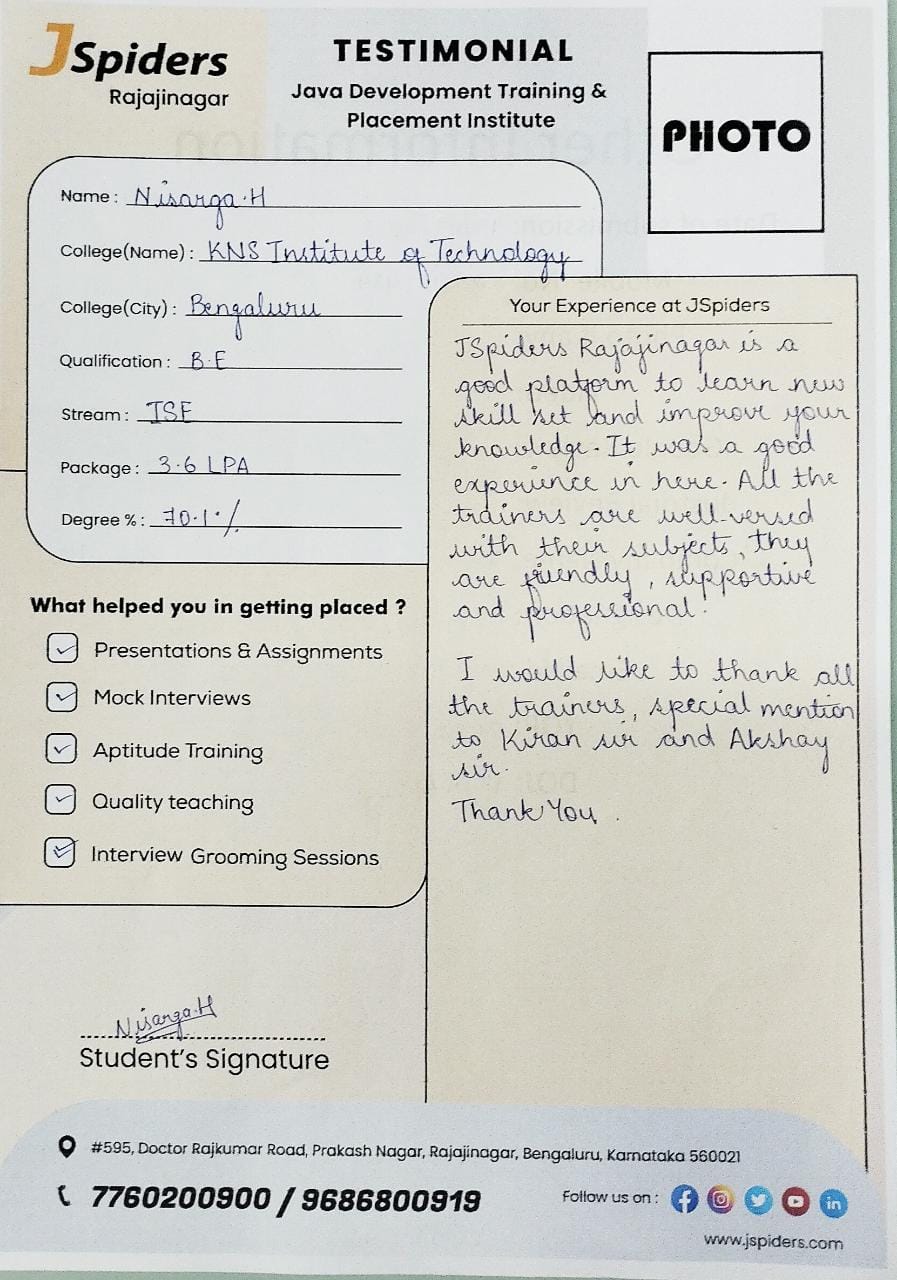 JSpiders
Rajajinagar
TESTIMONIAL
Java Development Training &
Placement Institute
PHOTO
Name : Nisarga.H
College(Name) : KNS Institute of Technology
College(City) : Bengaluru
Qualification : B.E
Stream : ISE
Package : 3.6 LPA
Degree % : 70.1%
What helped you in getting placed ?
Presentations & Assignments
Mock Interviews
Aptitude Training
Quality teaching
Interview Grooming Sessions
Your Experience at JSpiders
JSpiders Rajajinagar is a
good platform to learn new
skill set and improve your
knowledge. It was a good
experience in here. All the
trainers are well-versed
with their subjects, they
are friendly, supportive
and professional.
I would like to thank all
the trainers, special mention
to Kiran sir and Akshay
sir.
Thank You.
Nisarga.H
Student's Signature
#595, Doctor Rajkumar Road, Prakash Nagar, Rajajinagar, Bengaluru, Karnataka 560021
7760200900 / 9686800919
Follow us on :
www.jspiders.com